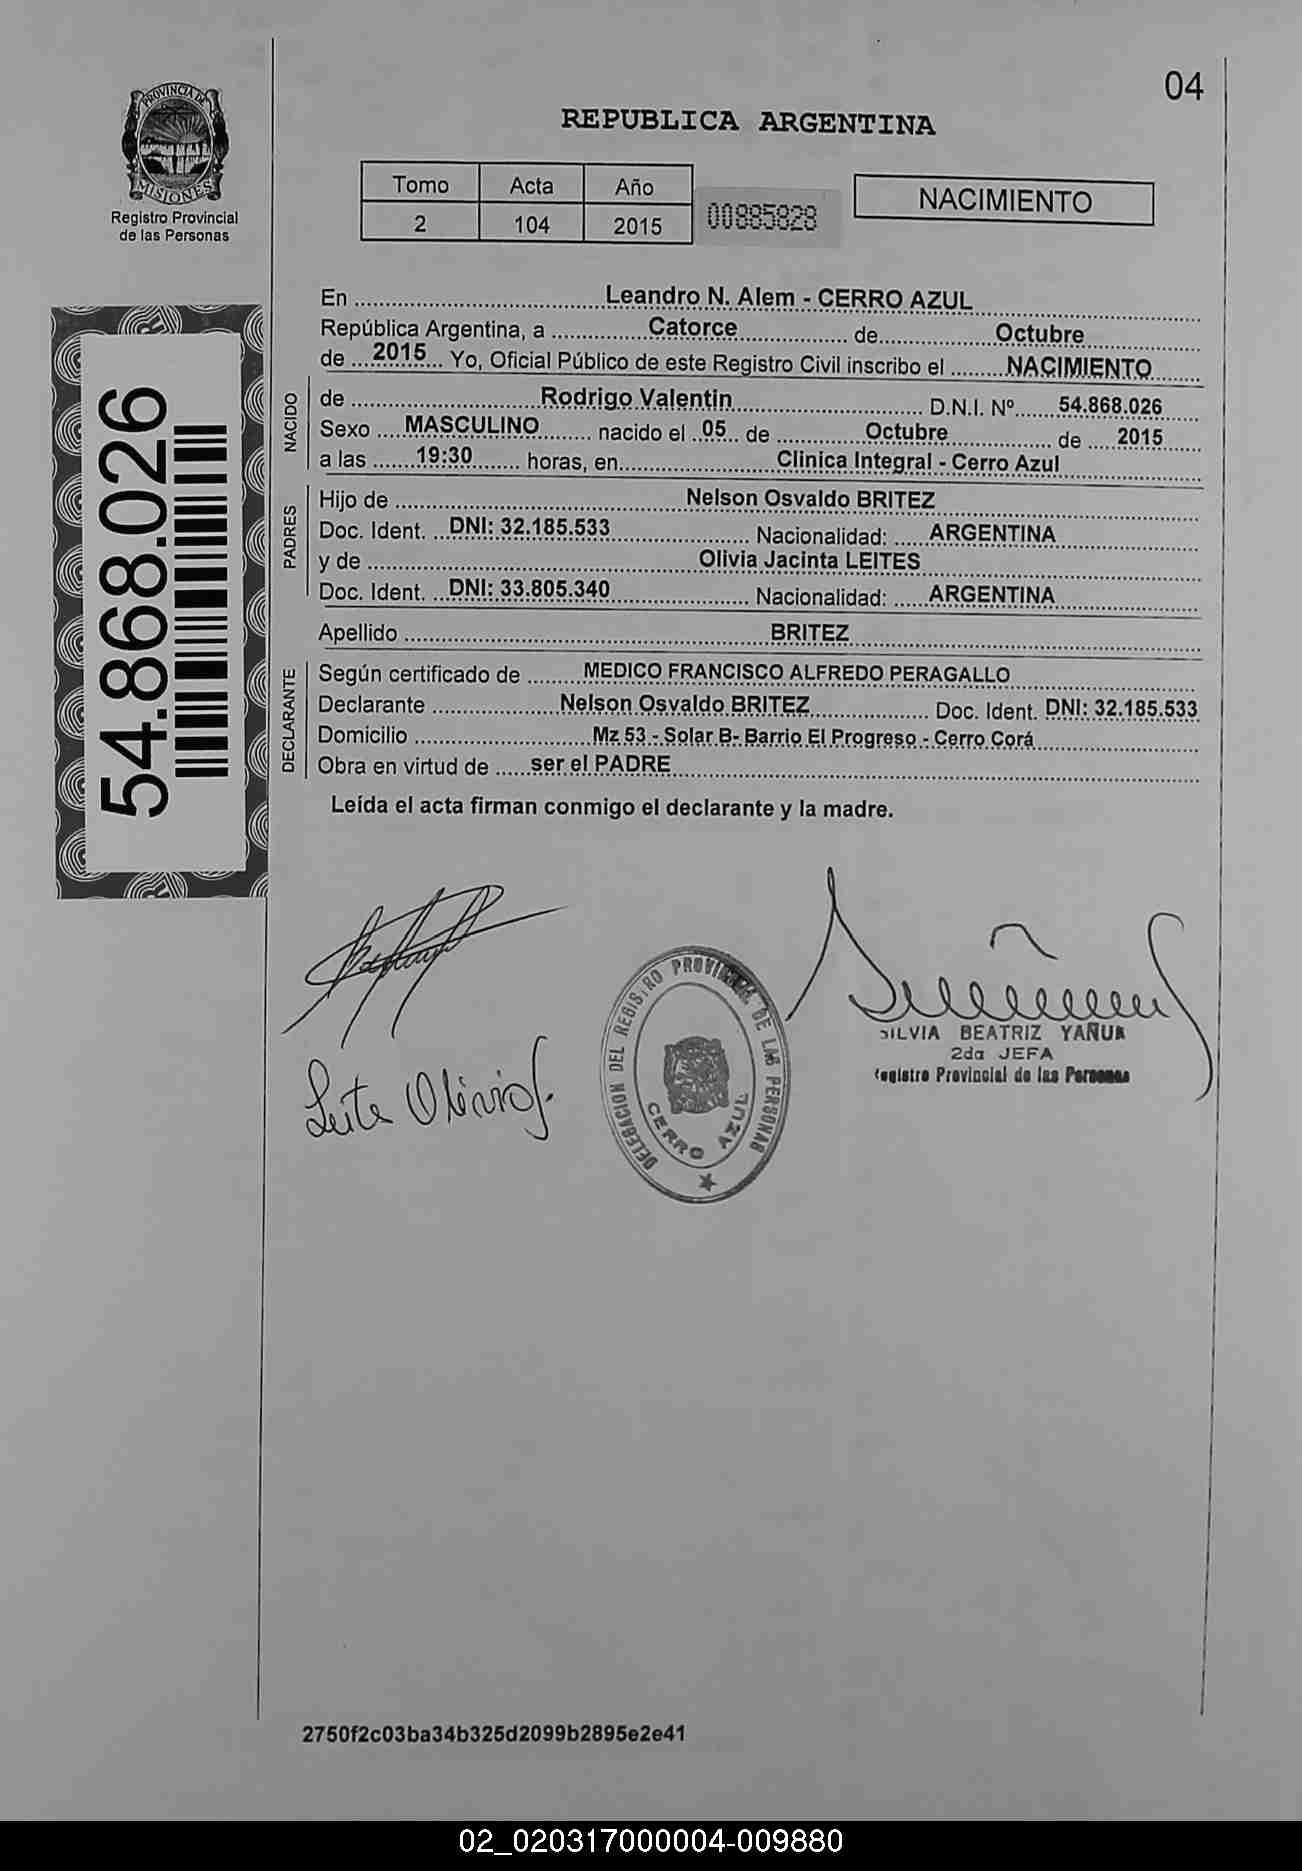 04
PROVINCIA DE
MISIONES
Registro Provincial
de las Personas
REPUBLICA ARGENTINA
Tomo Acta Año
2 104 2015
00885828
NACIMIENTO
54.868.026
En Leandro N. Alem - CERRO AZUL
República Argentina, a Catorce de Octubre
de 2015 Yo, Oficial Público de este Registro Civil inscribo el NACIMIENTO
NACIDO
de Rodrigo Valentin D.N.I. Nº 54.868.026
Sexo MASCULINO nacido el 05 de Octubre de 2015
a las 19:30 horas, en Clinica Integral - Cerro Azul
PADRES
Hijo de Nelson Osvaldo BRITEZ
Doc. Ident. DNI: 32.185.533 Nacionalidad: ARGENTINA
y de Olivia Jacinta LEITES
Doc. Ident. DNI: 33.805.340 Nacionalidad: ARGENTINA
Apellido BRITEZ
DECLARANTE
Según certificado de MEDICO FRANCISCO ALFREDO PERAGALLO
Declarante Nelson Osvaldo BRITEZ Doc. Ident. DNI: 32.185.533
Domicilio Mz 53 - Solar B- Barrio El Progreso - Cerro Corá
Obra en virtud de ser el PADRE
Leída el acta firman conmigo el declarante y la madre.
DELEGACION DEL REGISTRO PROVINCIAL DE LAS PERSONAS
CERRO AZUL
SILVIA BEATRIZ YAÑUK
2da JEFA
Registro Provincial de las Personas
2750f2c03ba34b325d2099b2895e2e41
02_020317000004-009880